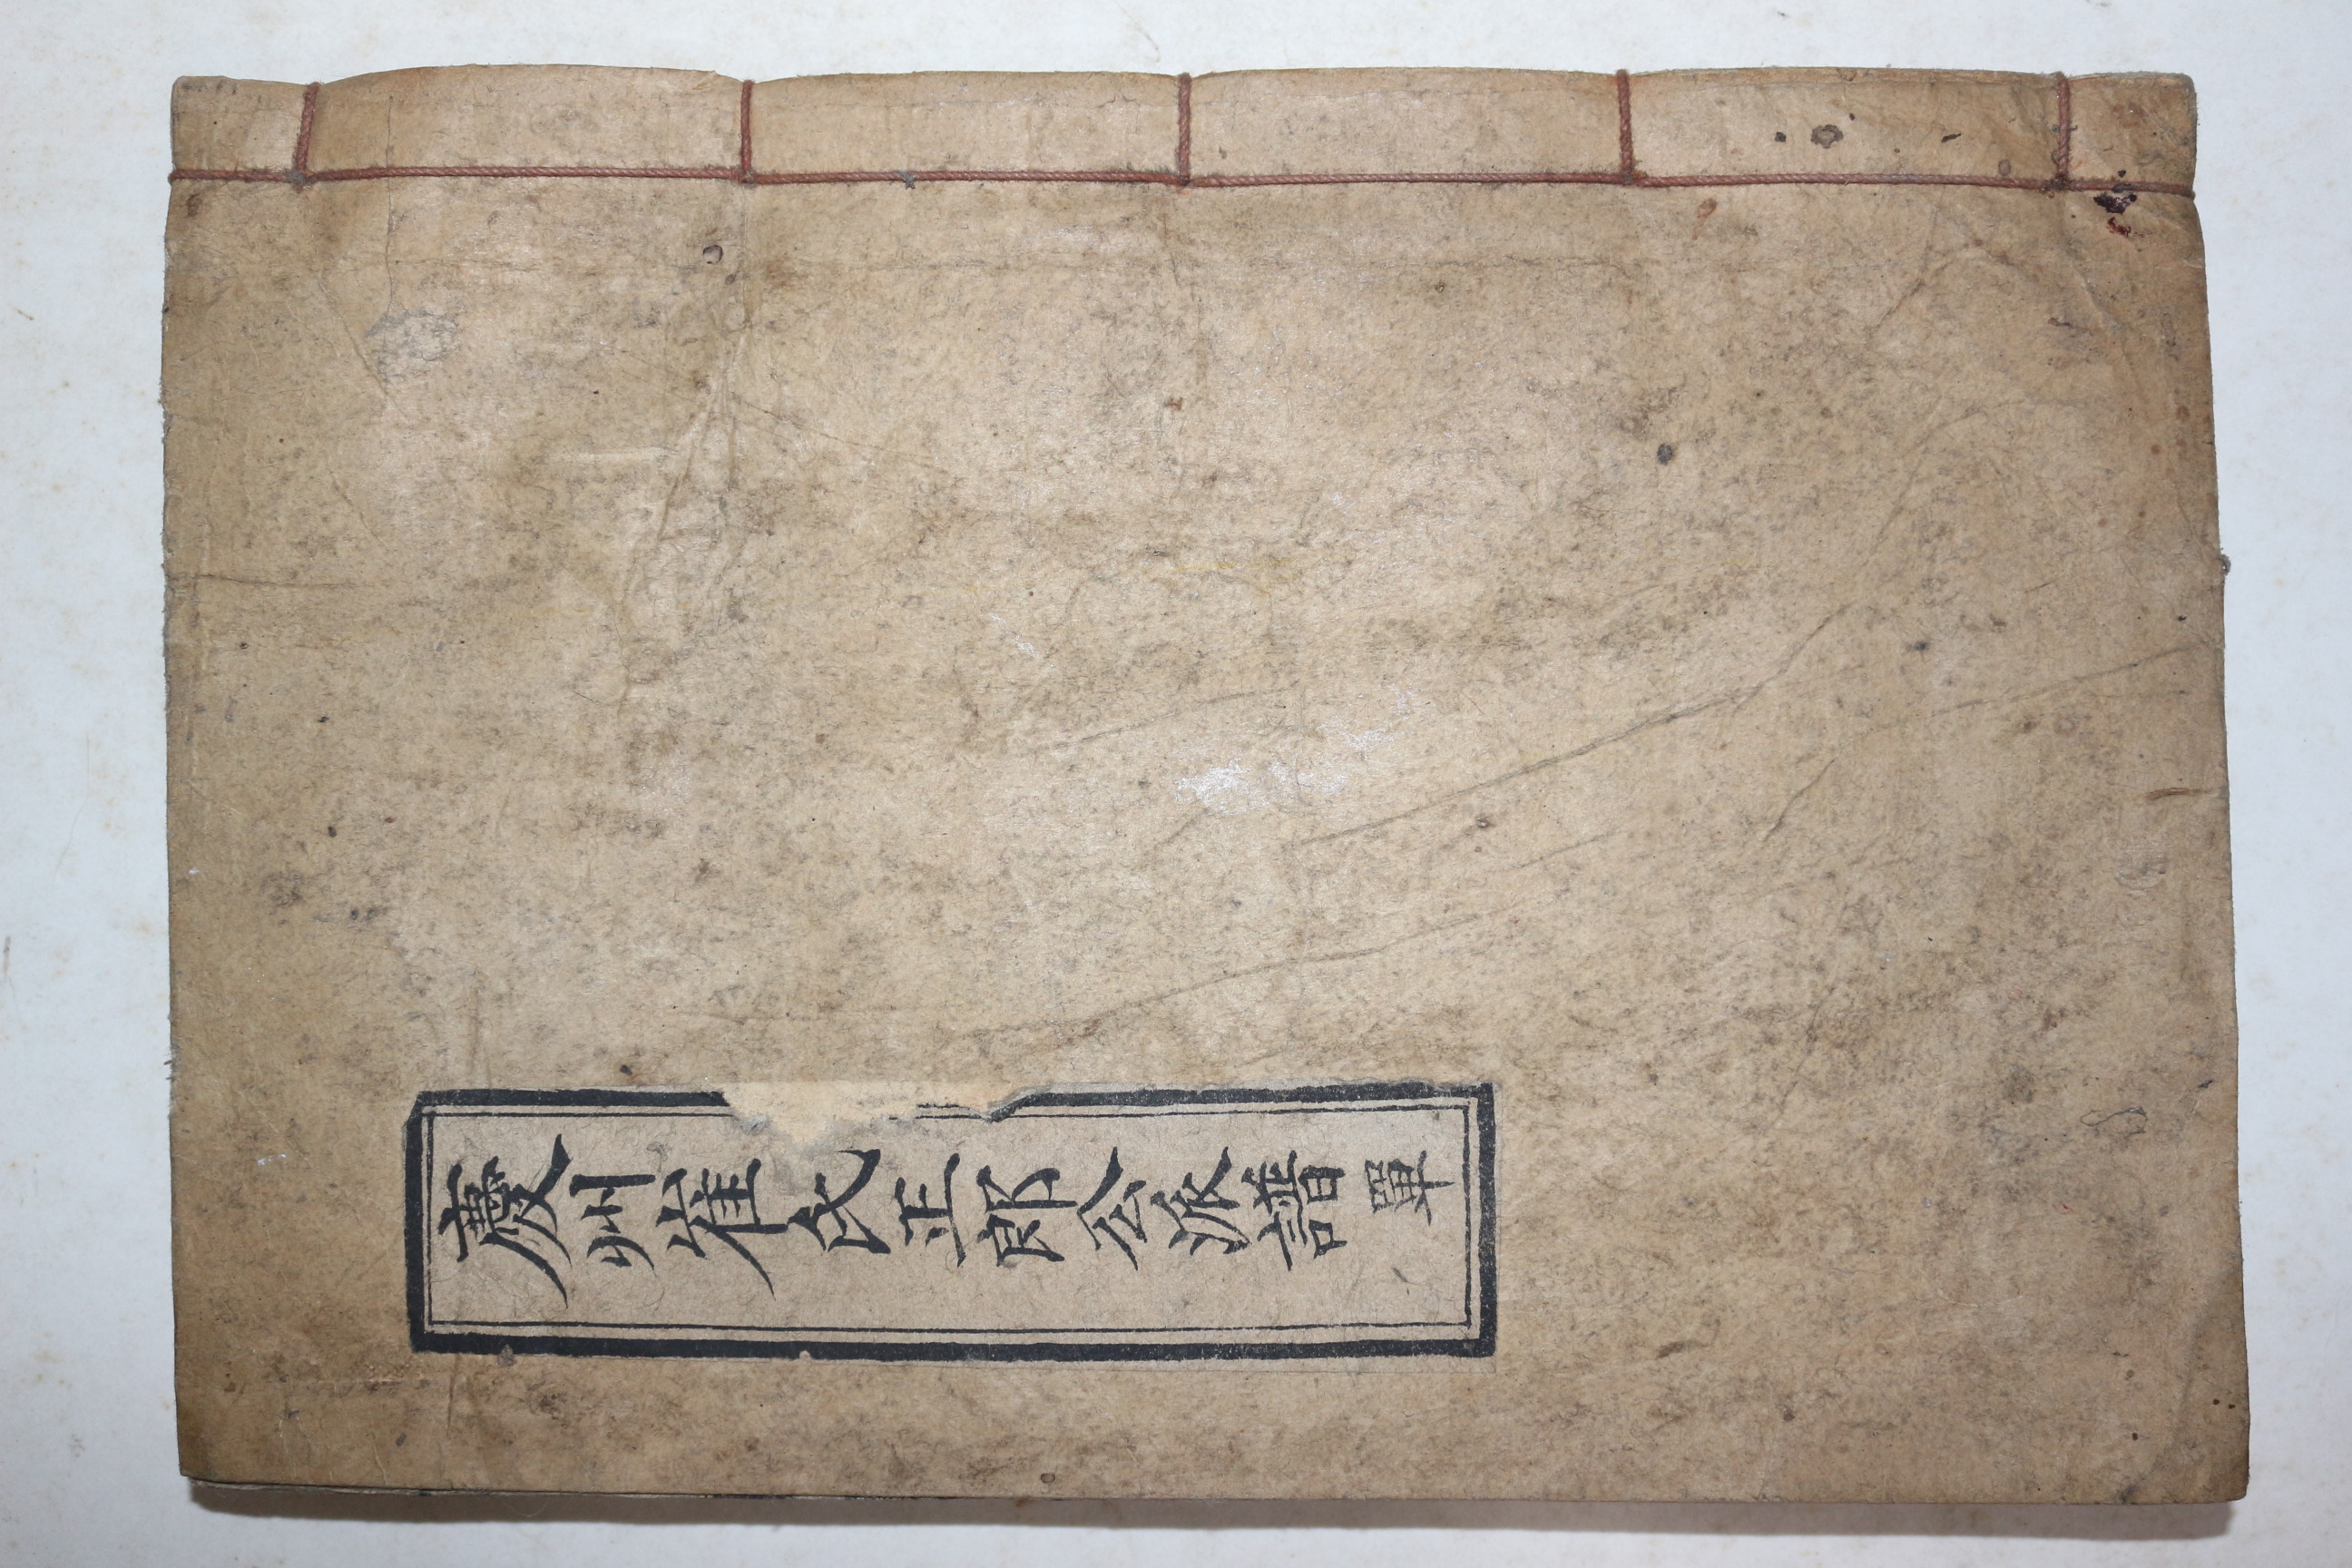 慶州崔氏正郎公派譜 單